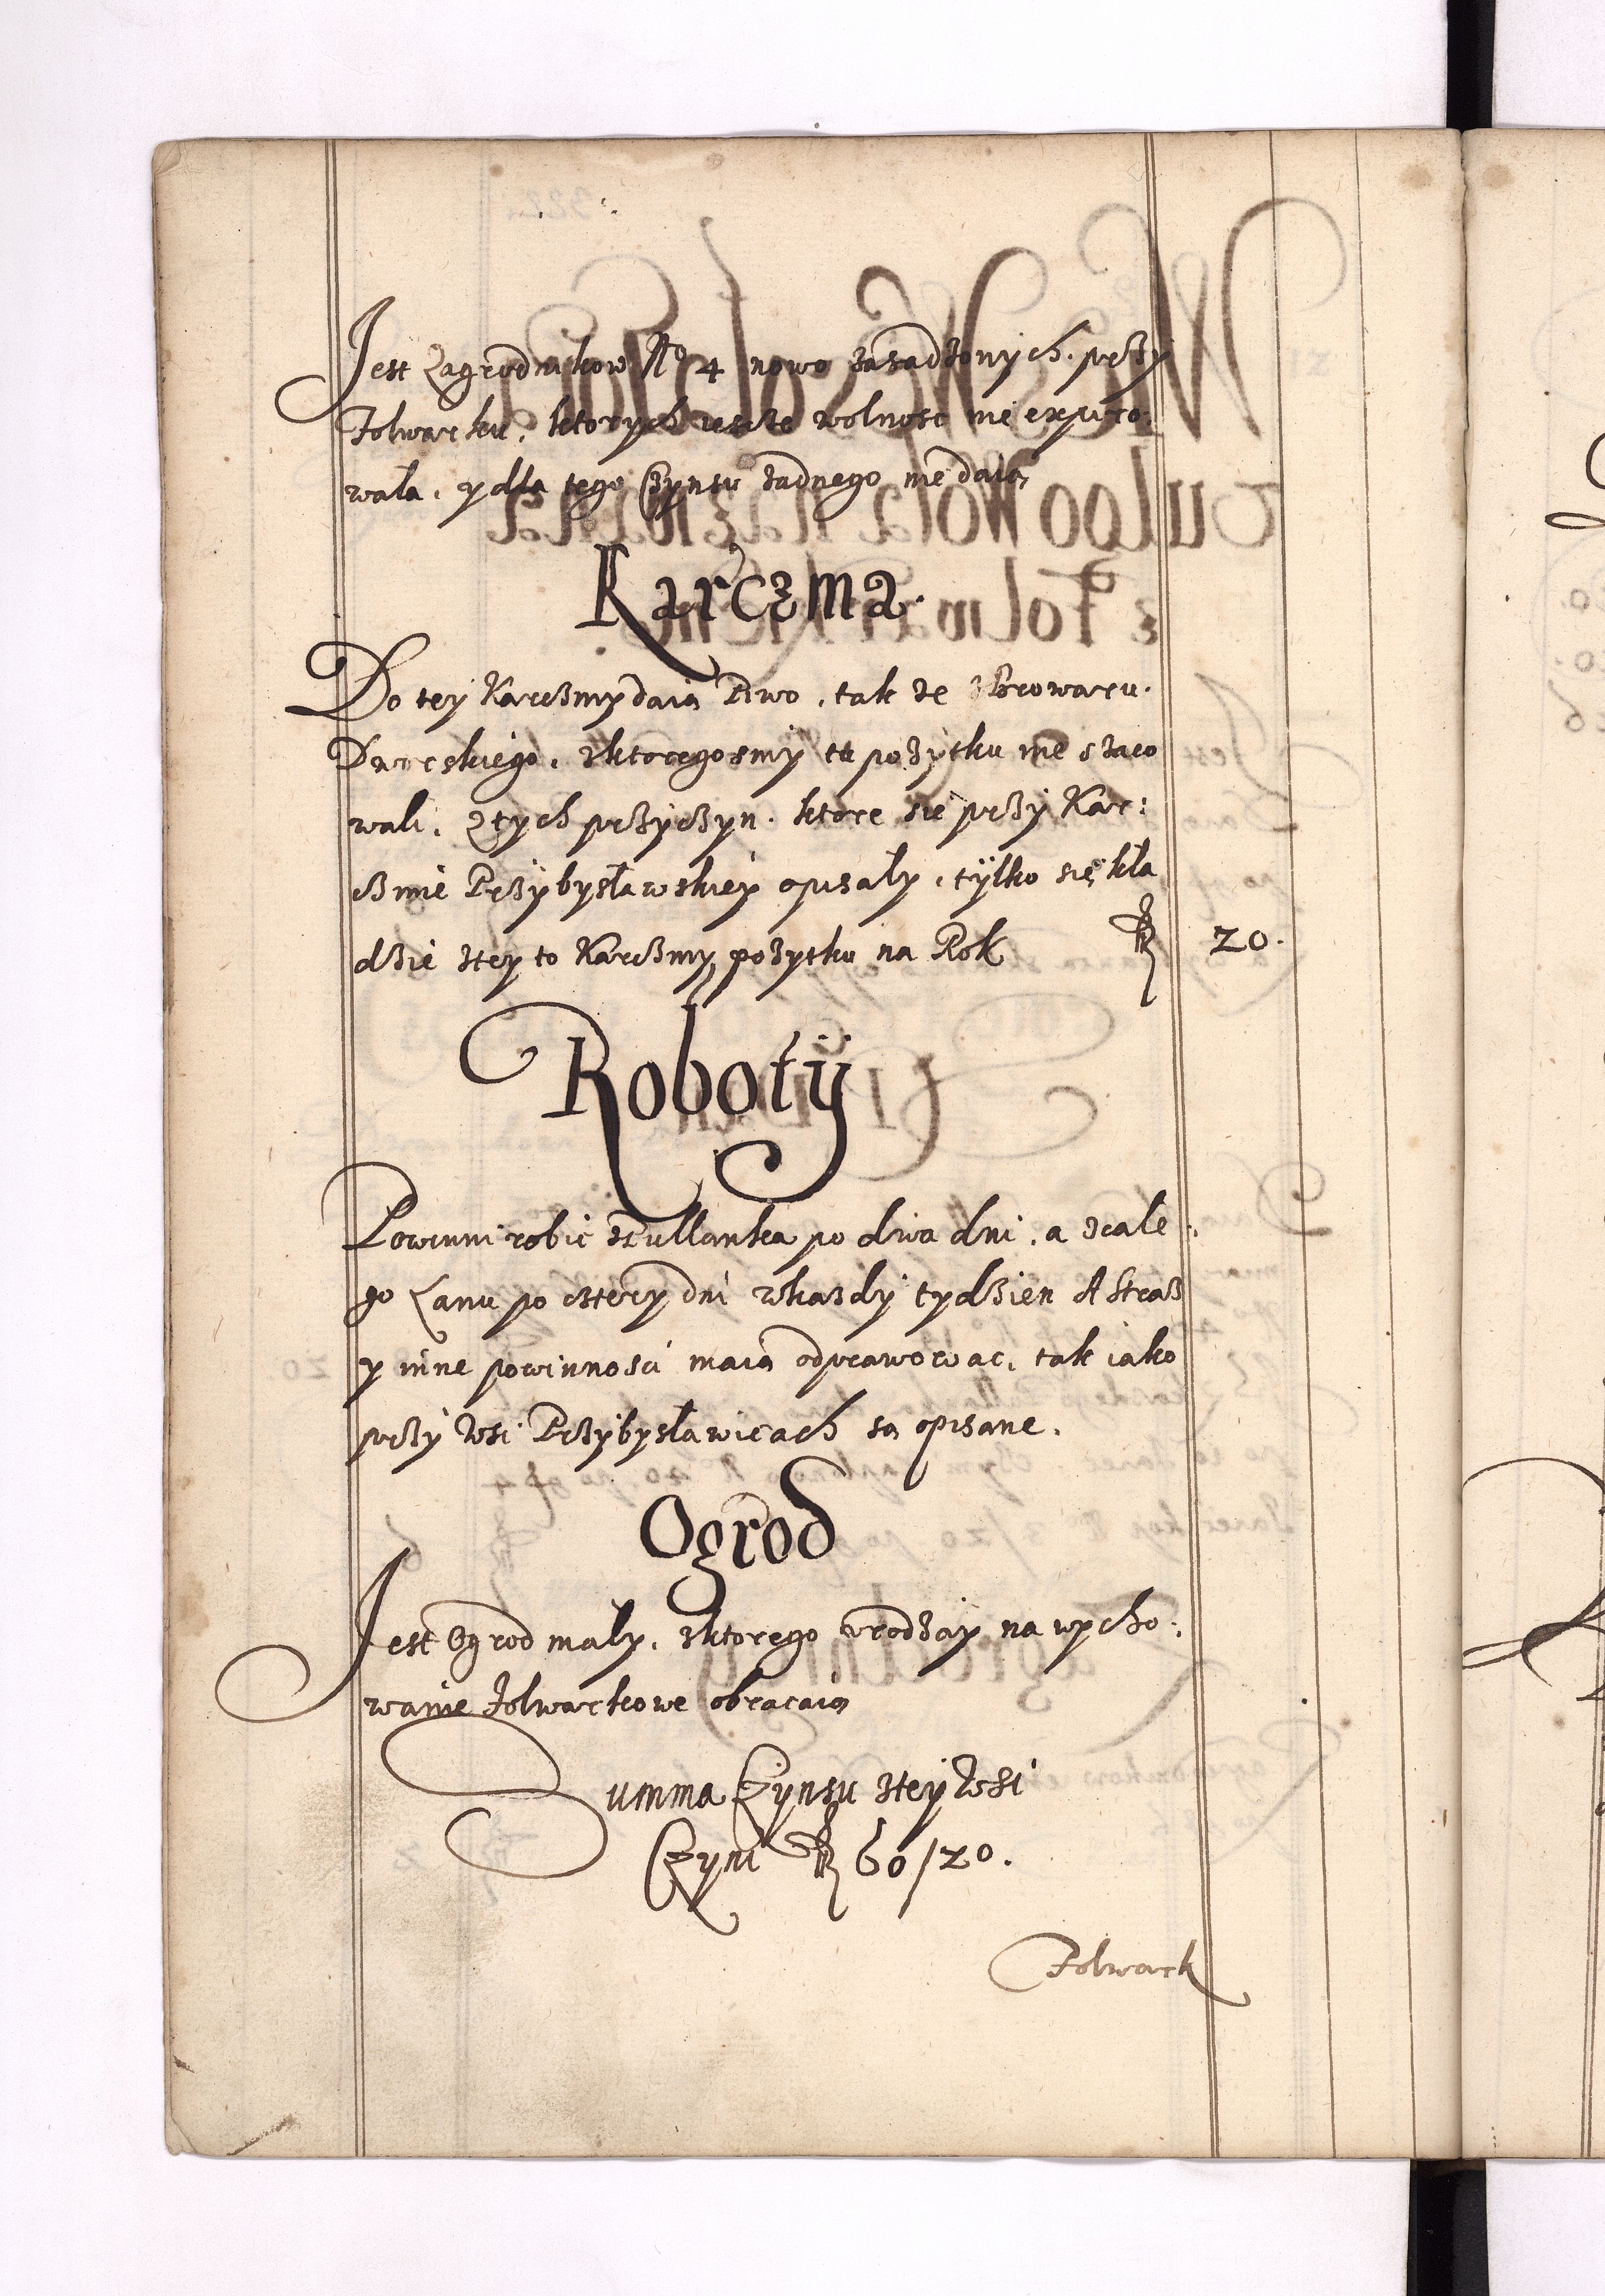 Jest Zagrodnikow No 4 nowo zasadzonych. przy
Folwarku, ktorych ieszcze wolnosc nie expiro:
wała, y dla tego Czynsu żadnego nie daią
Karczma.
Do tey Karczmy daią Piwo, tak ze z Browaru.
Dworskiego, z ktoregosmy tu pożytku nie szaco
wali, z tych przyczyn. ktore sie przy Kar:
czmie Przybysławskiey opisały, tylko się kła
dzie z tey to Karczmy pożytku na Rok 20.
Roboty
Powinni robic z Pullanka po dwa dni, a z całe:
go Łanu po cztery dni w kazdy tydzien A Straz
y inne powinnosci maią odprawowac, tak iako
przy Wsi Przybysławicach są opisane.
Ogrod
Jest Ogrod mały, z ktorego vrodzay na wycho:
wanie Folwarkowe obracaią
Summa Czynsu z tey Wsi
Czyni 60/20.
Folwark